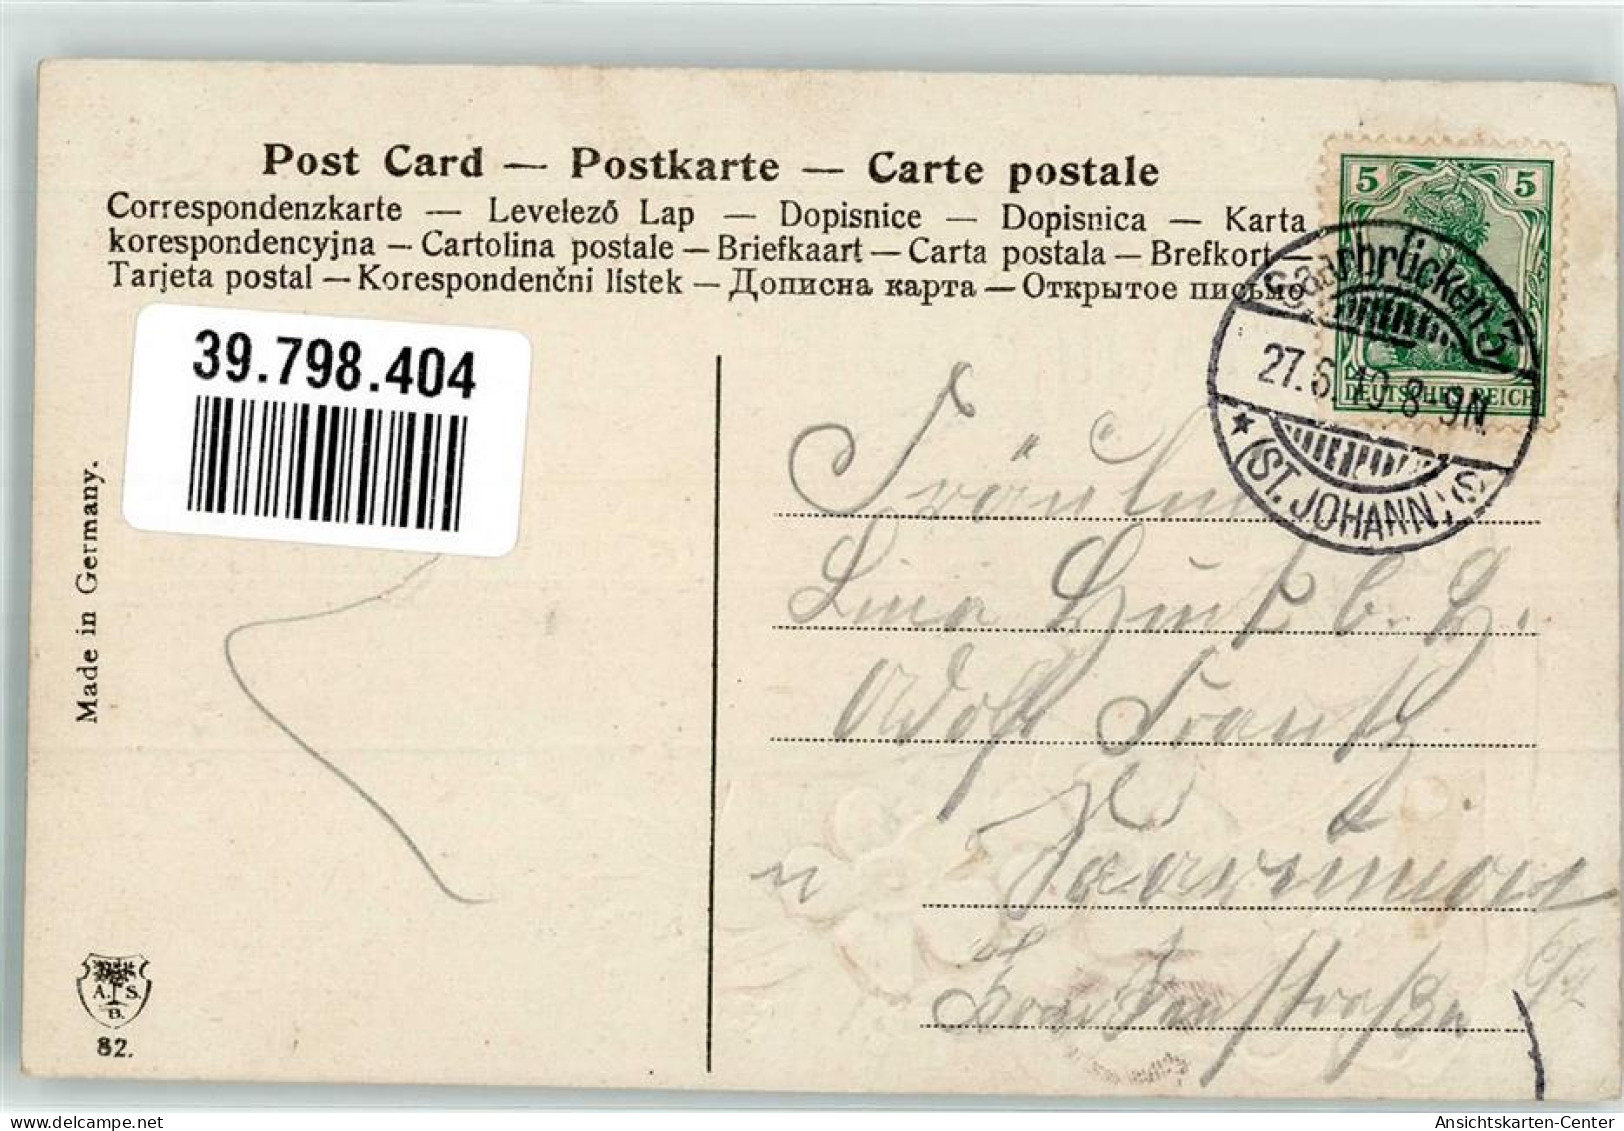 Post Card — Postkarte — Carte postale
Correspondenzkarte — Levelező Lap — Dopisnice — Dopisnica — Karta
korespondencyjna — Cartolina postale — Briefkaart — Carta postala — Brefkort —
Tarjeta postal — Korespondenčni lístek — Дописна карта — Открытое письмо
5 5
DEUTSCHES REICH
Saarbrücken 3
27.6.10.8-9N.
(ST. JOHANN)
39.798.404
Made in Germany.
Fräulein
Lina b. H.
Adolf Frantz
A. S.
B.
82.
Ansichtskarten-Center